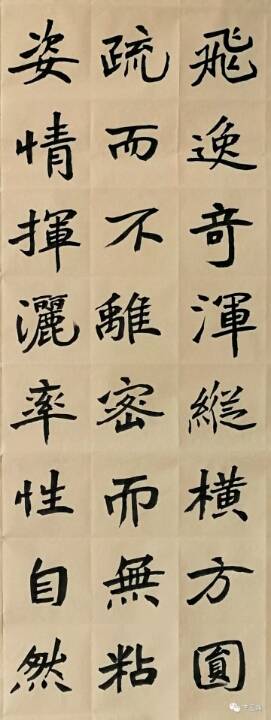 飛逸奇渾縱橫方圓
疏而不離密而無粘
姿情揮灑率性自然